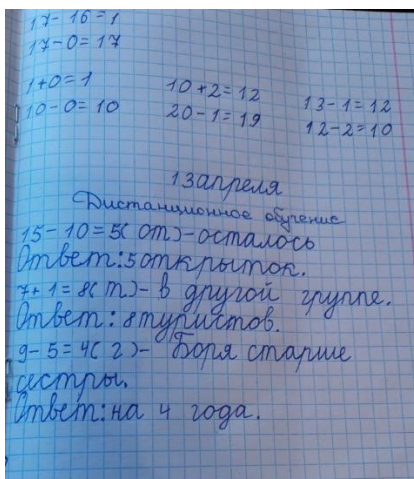 17-16=1
17-0=17
1+0=1 10+2=12 13-1=12
10-0=10 20-1=19 12-2=10
13 апреля
Дистанционное обучение
15-10=5(от)-осталось
Ответ:5 открыток.
7+1=8(т)- в другой группе.
Ответ: 8 туристов.
9-5=4(г)- Боря старше
сестры.
Ответ: на 4 года.